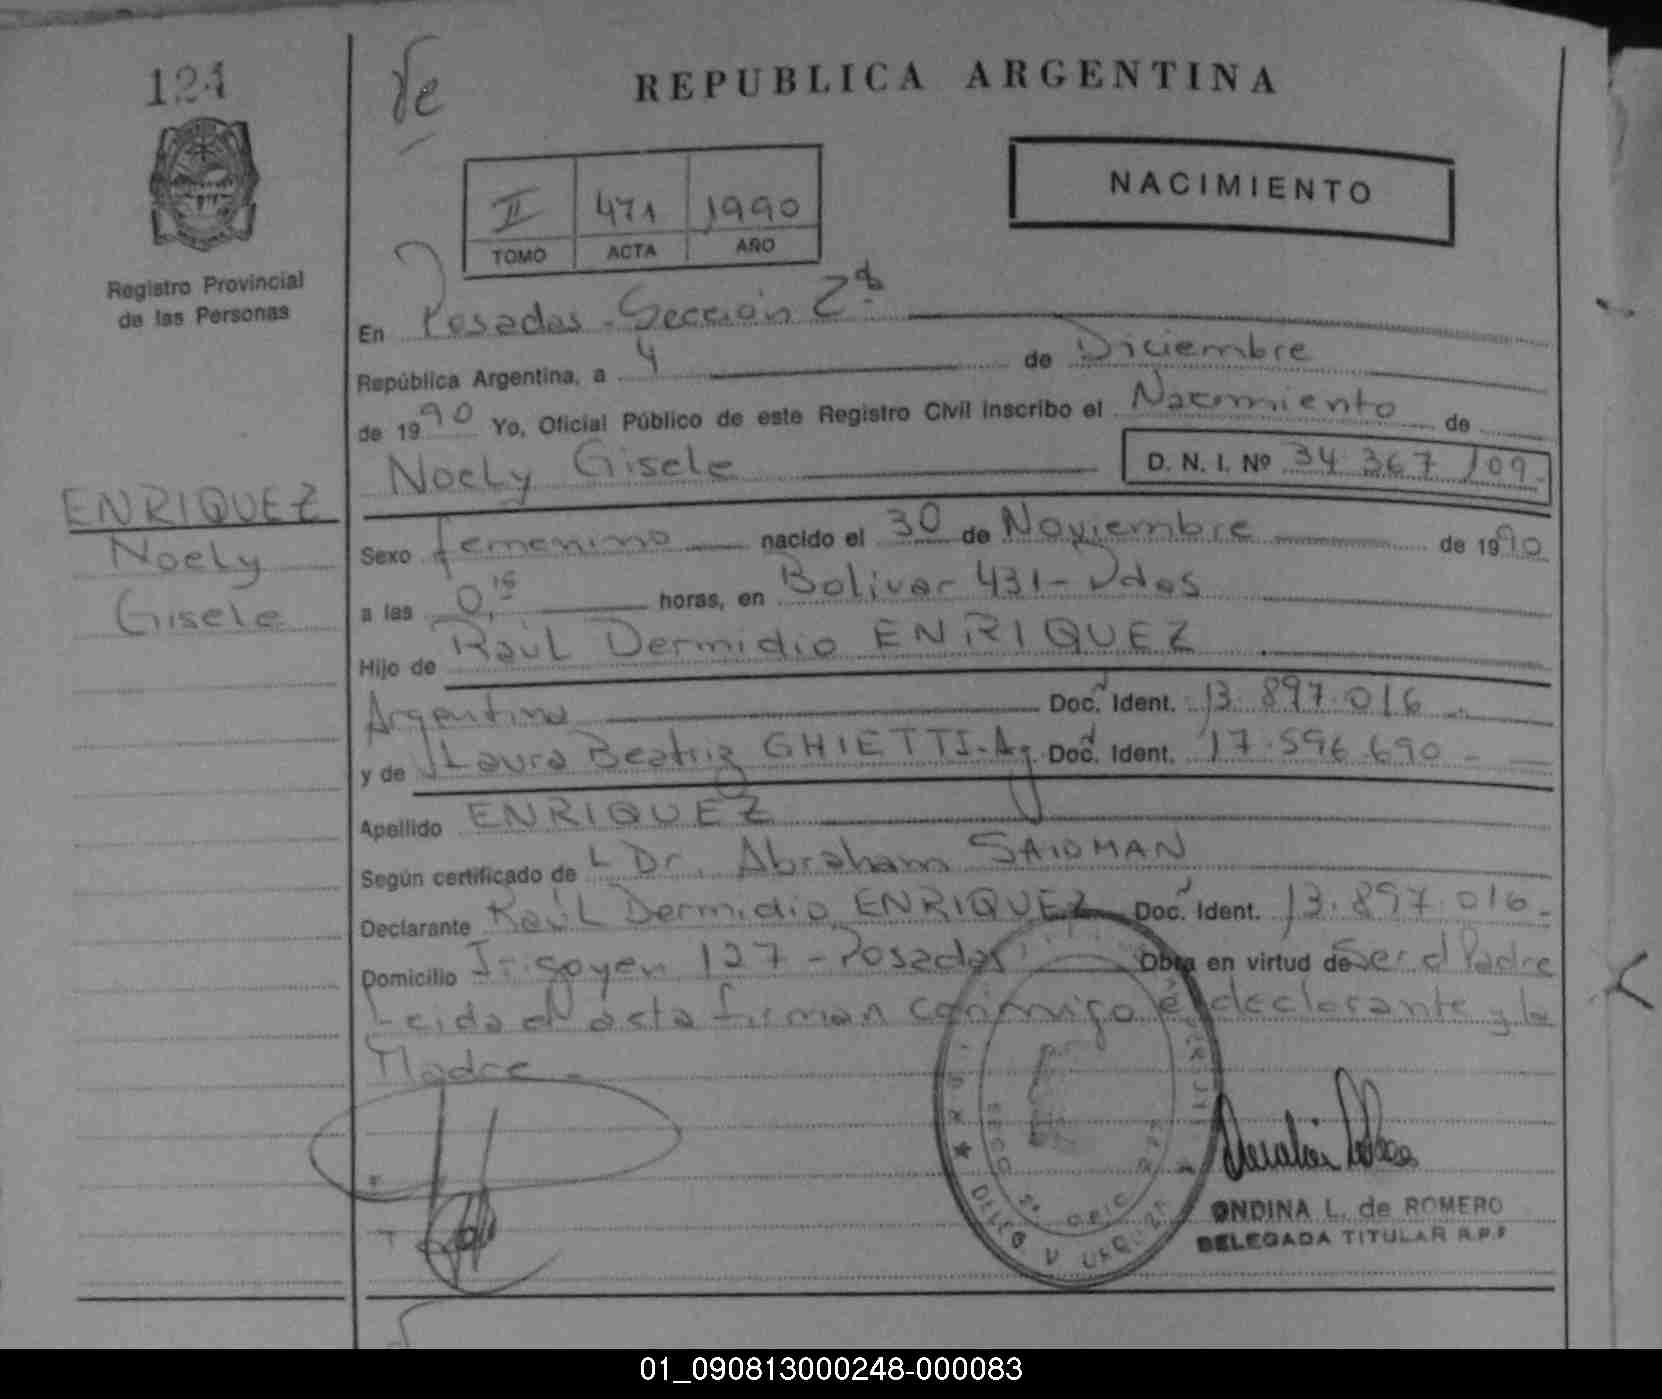 124
Ve
REPUBLICA ARGENTINA
NACIMIENTO
II 471 1990
TOMO ACTA AÑO
Registro Provincial
de las Personas
En Posadas - Sección 2da
República Argentina, a 4 de Diciembre
de 1990 Yo, Oficial Público de este Registro Civil inscribo el Nacimiento de
Noely Gisele D. N. I. Nº 34.367.109-
ENRIQUEZ
Noely
Gisele
Sexo femenino nacido el 30 de Noviembre de 1990
a las 0,15 horas, en Bolivar 431 - Pdas
Hijo de Raúl Dermidio ENRIQUEZ
Argentino Doc. Ident. 13.897.016 -
y de Laura Beatriz GHIETTI - Ag. Doc. Ident. 17.596.690 -
Apellido ENRIQUEZ
Según certificado de Dr. Abraham SAIDMAN
Declarante Raúl Dermidio ENRIQUEZ Doc. Ident. 13.897.016 -
Domicilio Irigoyen 127 - Posadas Obra en virtud de Ser el Padre
Leida el acta firman conmigo el declarante y la
Madre -
SECC 2a
DELEG. V URQUIZA
ONDINA L. de ROMERO
DELEGADA TITULAR R.P.P
01_090813000248-000083